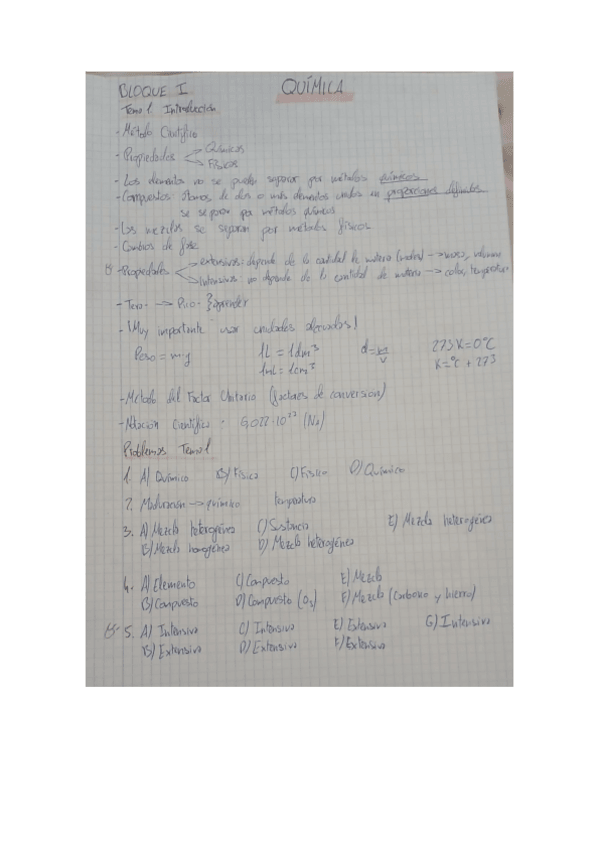 BLOQUE I QUÍMICA
Tema 1. Introducción
- Método Científico
- Propiedades Químicas
Físicas
- Los elementos no se pueden separar por métodos químicos
- Compuestos: átomos de dos o más elementos unidos en proporciones definidas
se separan por métodos químicos
- Las mezclas se separan por métodos físicos.
- Cambios de fase
- Propiedades extensivas: depende de la cantidad de materia → masa, volumen
intensivas: no depende de la cantidad de materia → color, temperatura
- Tera- → Pico- } aprender
- ¡Muy importante usar unidades derivadas!
Peso = m·g 1L = 1dm³ d = m/v 273 K = 0°C
1mL = 1cm³ K = °C + 273
- Método del Factor Unitario (factores de conversión)
- Notación Científica · 6,022·10²³ (Na)
Problemas Tema 1
1. A) Químico B) Físico C) Físico D) Químico
2. Maduración → químico temperatura
3. A) Mezcla heterogénea C) Sustancia E) Mezcla heterogénea
B) Mezcla homogénea D) Mezcla heterogénea
4. A) Elemento C) Compuesto E) Mezcla
B) Compuesto D) Compuesto (O₃) F) Mezcla (Carbono y hierro)
5. A) Intensiva C) Intensiva E) Extensiva G) Intensiva
B) Extensiva D) Extensiva F) Extensiva